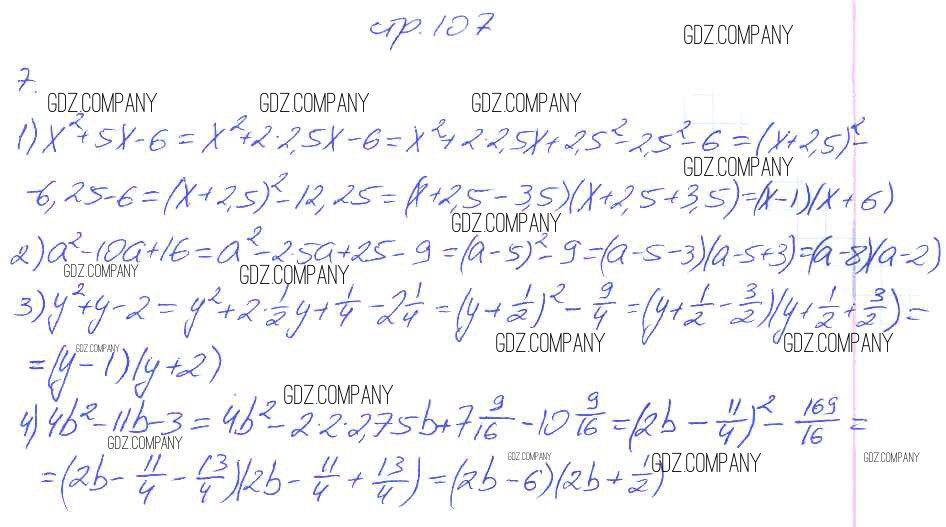 стр. 107
GDZ.COMPANY
7.
GDZ.COMPANY GDZ.COMPANY GDZ.COMPANY
1) x²+5x-6 = x²+2·2,5x-6 = x²+2·2,5x+2,5²-2,5²-6 = (x+2,5)²-
GDZ.COMPANY
-6,25-6 = (x+2,5)²-12,25 = (x+2,5-3,5)(x+2,5+3,5)=(x-1)(x+6)
GDZ.COMPANY
2) a²-10a+16 = a²-2·5a+25-9 = (a-5)²-9 = (a-5-3)(a-5+3)=(a-8)(a-2)
GDZ.COMPANY GDZ.COMPANY
3) y²+y-2 = y²+2·1/2y+1/4-2 1/4 = (y+1/2)²-9/4 = (y+1/2-3/2)(y+1/2+3/2) =
GDZ.COMPANY GDZ.COMPANY GDZ.COMPANY
= (y-1)(y+2)
GDZ.COMPANY
4) 4b²-11b-3 = 4b²-2·2·2,75b+7 9/16-10 9/16 = (2b-11/4)²-169/16 =
GDZ.COMPANY GDZ.COMPANY GDZ.COMPANY GDZ.COMPANY
= (2b-11/4-13/4)(2b-11/4+13/4) = (2b-6)(2b+1/2)